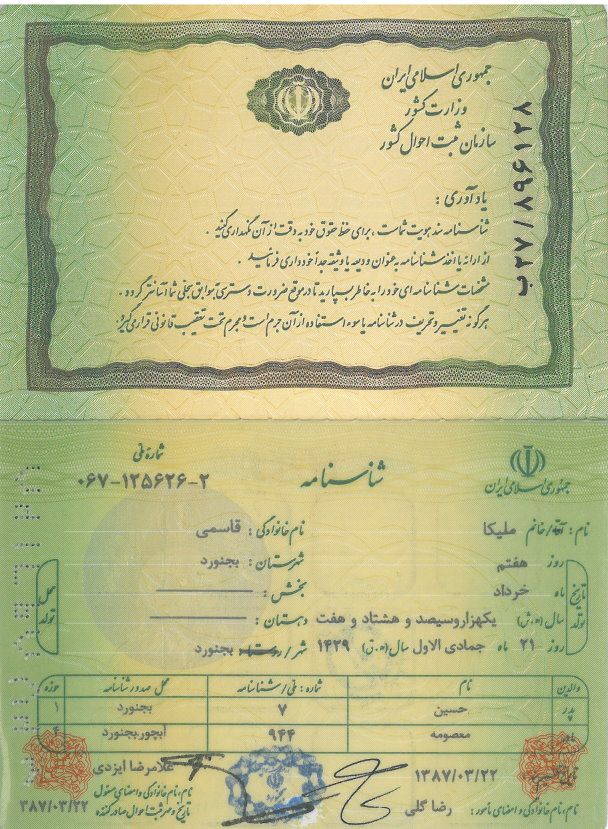 جمهوری اسلامی ایران
وزارت کشور
سازمان ثبت احوال کشور
ب۲۷/۸۹۶۱۲۸
یادآوری :
شناسنامه سند هویت شماست ، برای حفظ حقوق خود به دقت از آن نگهداری کنید .
از ارائه یا اخذ شناسنامه به عنوان ودیعه یا وثیقه جداً خودداری فرمائید .
مشخصات شناسنامه ای خود را به خاطر بسپارید تا در موقع ضرورت دسترسی به سوابق سجلی شما آسانتر گردد .
هرگونه تغییر و تحریف در شناسنامه یا سوء استفاده از آن جرم است و مجرم تحت تعقیب قانونی قرار می گیرد.
جمهوری اسلامی ایران
شناسنامه
شماره ملی
۰۶۷-۱۲۵۶۲۶-۲
نام : آقا/خانم ملیکا نام خانوادگی : قاسمی
تاریخ تولد
روز هفتم
ماه خرداد
سال (ه.ش) یکهزار و سیصد و هشتاد و هفت
روز ۲۱ ماه جمادی الاول سال (ه.ق) ۱۴۲۹
محل تولد
شهرستان : بجنورد
بخش :
دهستان :
شهر/روستا : بجنورد
والدین نام شماره : ملی/شناسنامه محل صدور شناسنامه حوزه
پدر حسین ۷ بجنورد ۱
مادر معصومه ۹۴۴ آبچور.بجنورد ۴
۱۳۸۷/۰۳/۲۲
نام، نام خانوادگی و امضای مامور : رضا گلی
غلامرضا ایزدی
نام، نام خانوادگی و امضای مسئول
تاریخ و مهر ثبت احوال صادرکننده
۳۸۷/۰۳/۲۲